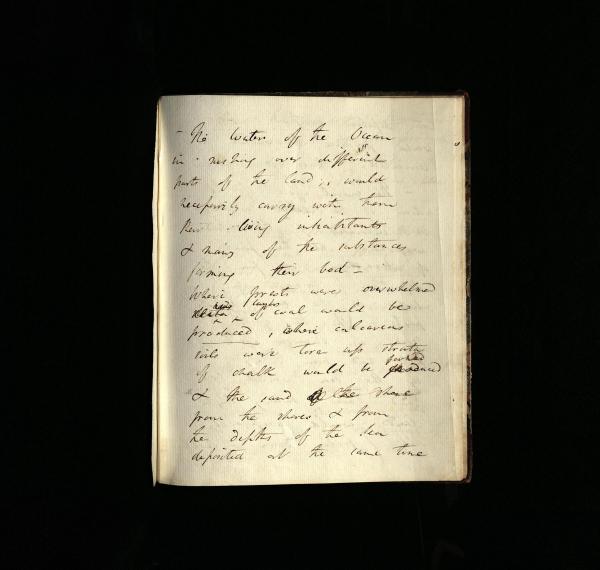 – The waters of the Ocean
in rushing over different
parts of the land, would
necessarily carry with them
their living inhabitants
& many of the substances
forming their bed –
Where forests were overwhelmed
layers
of coal would be
produced, where calcareous
soils were torn up strata
formed
of chalk would be produced
& the sand of the shore
from the shores & from
the depths of the sea
deposited at the same time